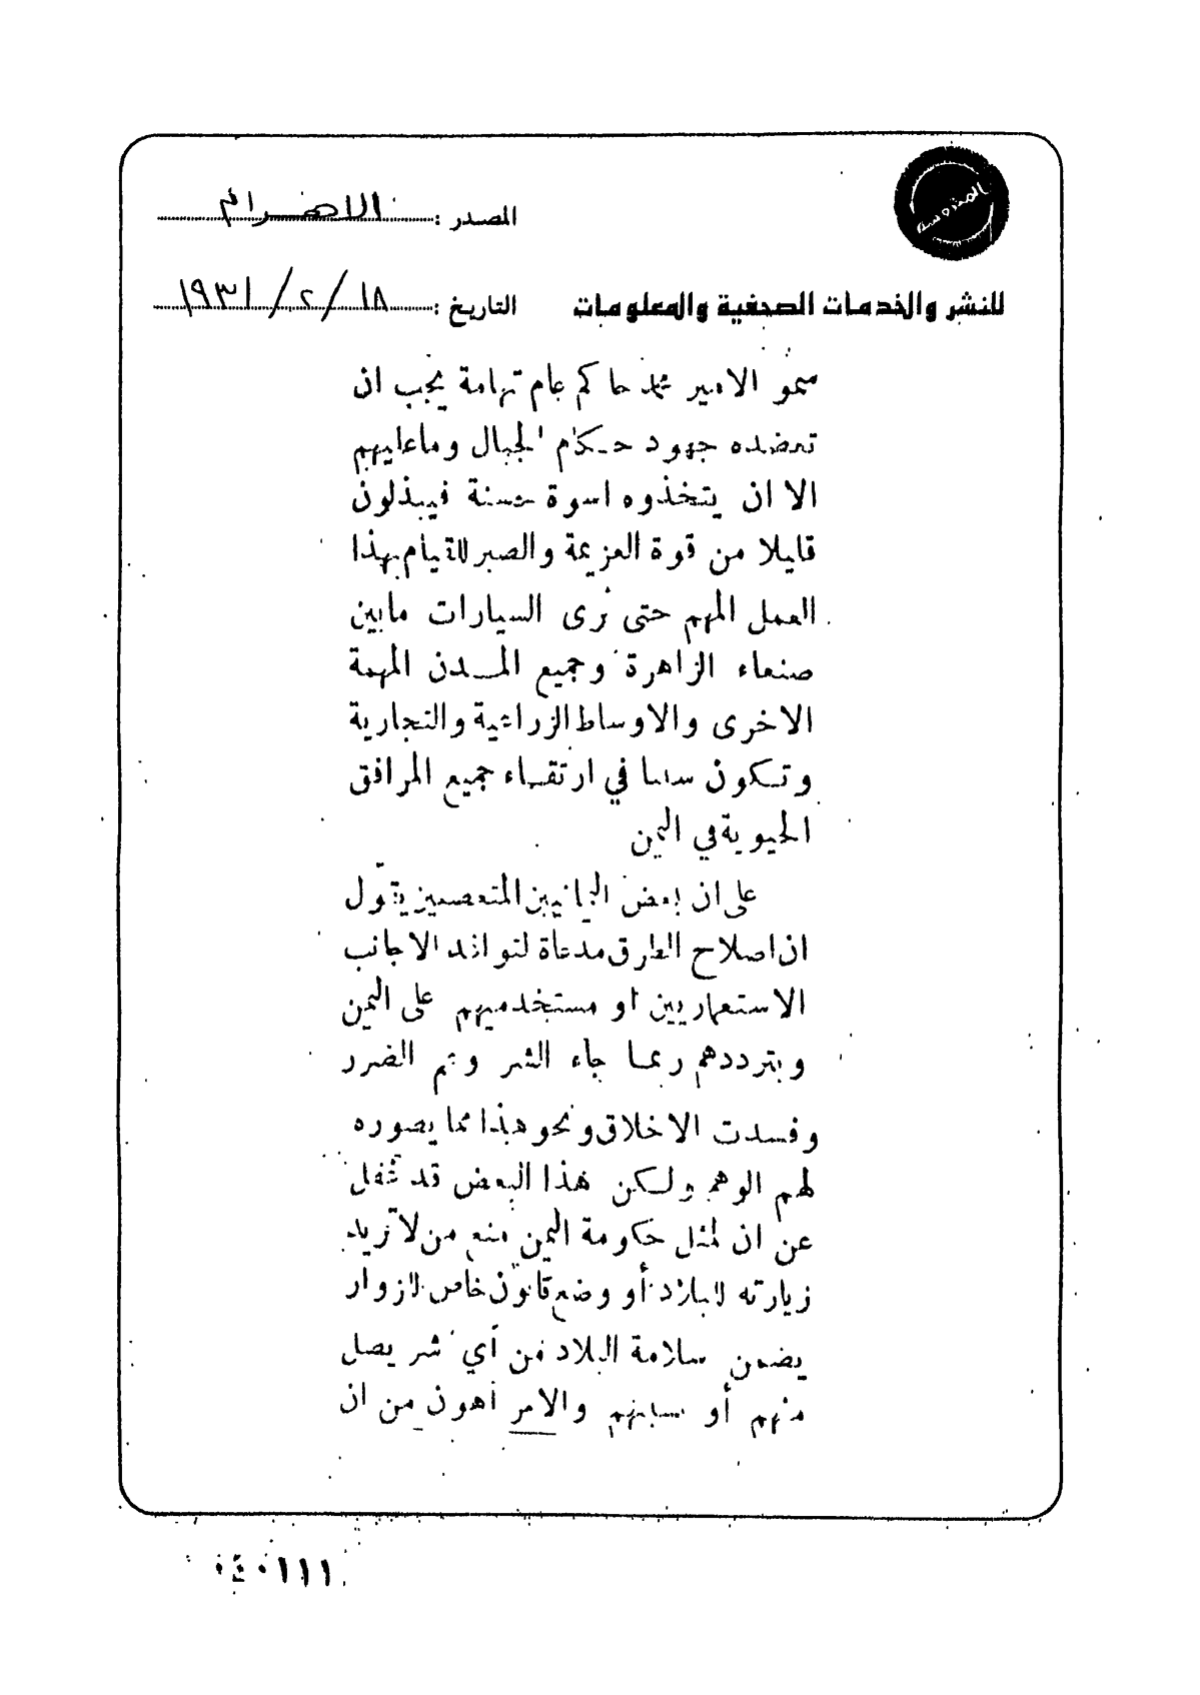 المحروسة
المصدر : الاهرام
للنشر والخدمات الصحفية والمعلومات
التاريخ : ١٨ / ٢ / ١٩٣١
سمو الامير محمد حاكم عام تهامة يجب ان
تعضده جهود حكام الجبال وما عليهم
الا ان يتخذوه اسوة حسنة فيبذلون
قليلا من قوة العزيمة والصبر للقيام بهذا
العمل المهم حتى نرى السيارات مابين
صنعاء الزاهرة وجميع المدن المهمة
الاخرى والاوساط الزراعية والتجارية
وتكون سببا في ارتقاء جميع المرافق
الحيوية في اليمن
على ان بعض اليمانيين المتعصبين يقول
ان اصلاح الطرق مدعاة لتوافد الاجانب
الاستعماريين او مستخدميهم على اليمن
وبترددهم ربما جاء الشر وعم الضرر
وفسدت الاخلاق ونحو هذا مما يصوره
لهم الوهم ولكن هذا البعض قد غفل
عن ان لمثل حكومة اليمن منع من لا تريد
زيارته للبلاد أو وضع قانون خاص للزوار
يضمن سلامة البلاد من أي شر يصل
منهم أو بسببهم والامر أهون من ان